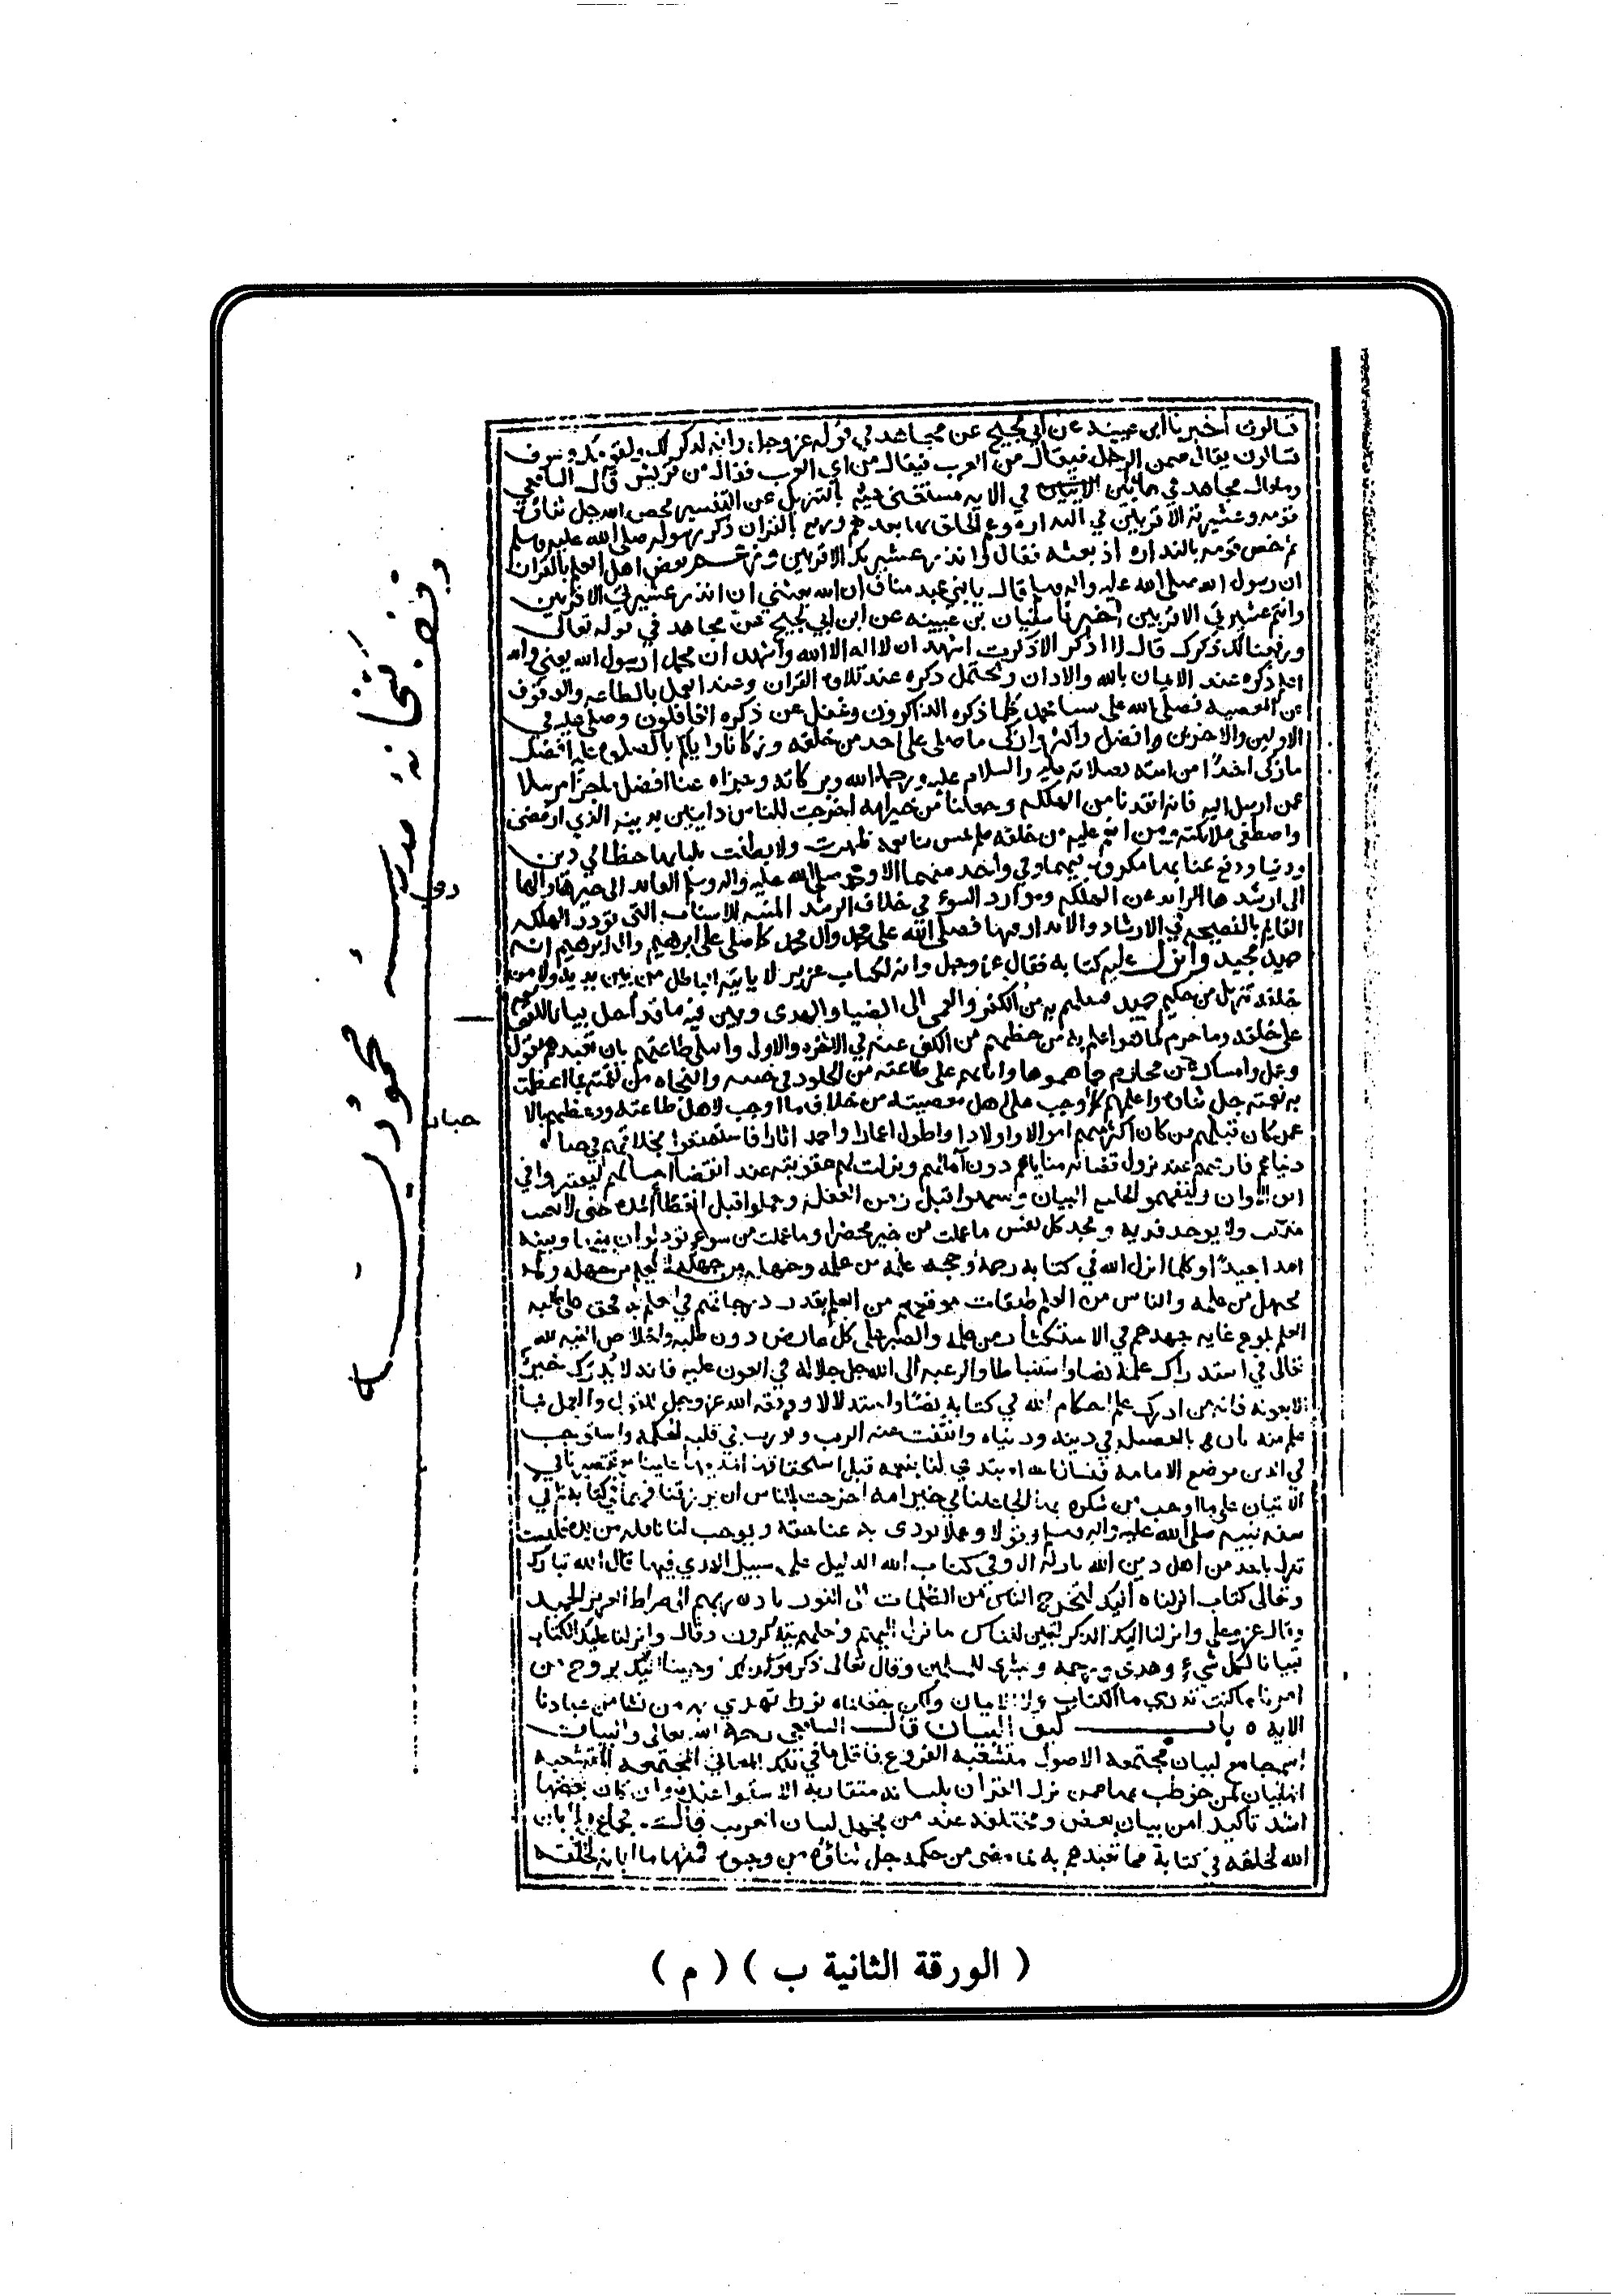 تسالون اخبرنا ابن عيينه عن ابي نجيح عن مجاهد في قوله عز وجل وانه لذكر لك ولقومك وسوف
تسالون يقال ممن الرجل فيقال من العرب فيقال من اي العرب فيقال من قريش قال الشافعي
وما قال مجاهد في الايه مستغنى فيه بالتنزيل عن التفسير فخص الله جل ثناؤه
قومه وعشيرته الاقربين في النذاره وعم الخلق بها بعدهم ورفع بالقران ذكر رسوله صلى الله عليه وسلم
ثم خص قومه بالنذاره اذ بعثه فقال وانذر عشيرتك الاقربين وزعم بعض اهل العلم بالقران
ان رسول الله صلى الله عليه واله وسلم قال يا بني عبد مناف ان الله بعثني ان انذر عشيرتي الاقربين
وانتم عشيرتي الاقربين اخبرنا سفيان بن عيينه عن ابن ابي نجيح عن مجاهد في قوله تعالى
ورفعنا لك ذكرك قال لا اذكر الا ذكرت اشهد ان لا اله الا الله واشهد ان محمدا رسول الله يعني والله
اعلم ذكره عند الايمان بالله والاذان ويحتمل ذكره عند تلاوه القران وعند العمل بالطاعه والوقوف
عن المعصيه فصلى الله على نبينا محمد كلما ذكره الذاكرون وغفل عن ذكره الغافلون وصلى عليه في
الاولين والاخرين افضل واكثر وازكى ما صلى على احد من خلقه وزكانا واياكم بالصلوه عليه افضل
ما زكى احدا من امته بصلاته عليه والسلام عليه ورحمة الله وبركاته وجزاه عنا افضل ما جزا مرسلا
عمن ارسل اليه فانه انقذنا من الهلكه وجعلنا من خير امه اخرجت للناس داينين بدينه الذي ارتضى
واصطفى ملائكته ومن انعم عليه من خلقه فلم تمس بنا نعمه ظهرت ولا بطنت نلنا بها حظا في دين
ودنيا ودفع عنا بها مكروه فيهما وفي واحد منهما الا ومحمد صلى الله عليه واله وسلم القائد الى خيرها والهادي
الى ارشدها الزائد عن الهلكه وموارد السوء في خلاف الرشد المنبه للاسباب التي تورد الهلكه
القايم بالنصيحه في الارشاد والانذار فيها فصلى الله على محمد وال محمد كما صلى على ابرهيم وال ابرهيم انه
حميد مجيد وانزل عليه كتابه فقال عز وجل وانه لكتاب عزيز لا ياتيه الباطل من بين يديه ولا من
خلفه تنزيل من حكيم حميد فنقلهم به من الكفر والعمى الى الضيا والهدى وبين فيه ما قد احل
على خلقه وما حرم لما هو اعلم به من حظهم من الكف عنه في الاخره والاولى وابتلى طاعتهم بان تعبدهم بقول
وعمل وامساك عن محارم حماهموها واثابهم على طاعته من الخلود في جنته والنجاه من نقمته ما عظمت
به نعمته جل ثناؤه واعلمهم ما اوجب على اهل معصيته من خلاف ما اوجب لاهل طاعته ووعظهم بالاخبار
عمن كان قبلهم ممن كان اكثر منهم اموالا واولادا واطول اعمارا واحمد اثارا فاستمتعوا بخلاقهم في حياه
دنياهم فازفتهم عند نزول قضائه مناياهم دون امالهم ونزلت بهم عقوبته عند انقضا اجالهم ليعتبروا في
انف الاوان ويتفهموا بجليه البيان وينتبهوا قبل رين الغفله ويعملوا قبل انقطاع المده حتى لا يعتب
مذنب ولا يوخذ فديه وتجد كل نفس ما عملت من خير محضرا وما عملت من سوء تود لو ان بينها وبينه
امدا بعيدا وكلما انزل الله في كتابه رحمة وحجه علمه من علمه وجهله من جهله لا يعلم من جهله ولا
يجهل من علمه والناس من العلم طبقات موقعهم من العلم بقدر درجاتهم في العلم به فحق على طلبه
العلم بلوغ غايه جهدهم في الاستكثار من علمه والصبر على كل عارض دون طلبه واخلاص النيه لله
تعالى في استدراك علمه نصا واستنباطا والرغبه الى الله جل جلاله في العون عليه فانه لا يدرك خير
الا بعونه فانه من ادرك علم احكام الله في كتابه نصا واستدلالا ووفقه الله عز وجل للقول والعمل بما
علم منه فاز بالفضيله في دينه ودنياه وانتفت عنه الريب ونورت في قلبه الحكمه واستوجب
في الدين موضع الامامه فنسال الله المبتدي لنا بنعمه قبل استحقاقها المديمها علينا مع تقصيرنا في
الاتيان على ما اوجب من شكره بها الجاعلنا في خير امه اخرجت للناس ان يرزقنا فهما في كتابه ثم في
سنه نبيه صلى الله عليه واله وسلم وقولا وعملا يودى به عنا حقه ويوجب لنا نافله مزيده فليست
تنزل باحد من اهل دين الله نازله الا وفي كتاب الله الدليل على سبيل الهدي فيها قال الله تبارك
وتعالى كتاب انزلناه اليك لتخرج الناس من الظلمات الى النور باذن ربهم الى صراط العزيز الحميد
وقال عز وعلى وانزلنا اليك الذكر لتبين للناس ما نزل اليهم ولعلهم يتفكرون وقال وانزلنا عليك الكتاب
تبيانا لكل شيء وهدى ورحمه وبشرى للمسلمين وقال تعالى ذكره وكذلك اوحينا اليك بروح من
امرنا ما كنت تدري ما الكتاب ولا الايمان ولكن جعلناه نورا نهدي به من نشا من عبادنا
الايه ه باب كيف البيان قال الشافعي رحمة الله تعالى والبيان
اسم جامع لبيان مجتمعة الاصول متشعبه الفروع فاقل ما في تلك المعاني المجتمعه المتشعبه
انها بيان لمن خوطب بها ممن نزل القران بلسانه متقاربه الاستواء عنده وان كان بعضها
اشد تاكيدا من بيان بعض ومختلفه عند من يجهل لسان العرب قال فجماع ما ابان
الله لخلقه في كتابه مما تعبدهم به لما مضى من حكمه جل ثناؤه من وجوه فمنها ما ابانه لخلقه
( الورقة الثانية ب ) ( م )